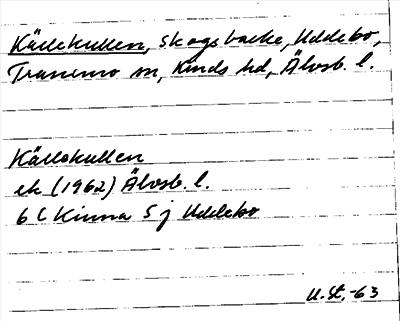 Källekullen, skogsbacke, Uddebo,
Tranemo sn, Kinds hd, Älvsb. l.
Källekullen
ek (1962) Älvsb. l.
6 C Kinna 5 j Uddebo
U. St. -63